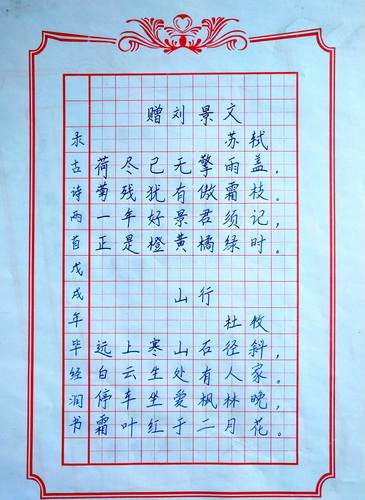 赠刘景文
苏轼
荷尽已无擎雨盖.
菊残犹有傲霜枝.
一年好景君须记,
正是橙黄橘绿时.
山行
杜牧
远上寒山石径斜,
白云生处有人家.
停车坐爱枫林晚,
霜叶红于二月花。
录古诗两首戊戌年毕经润书